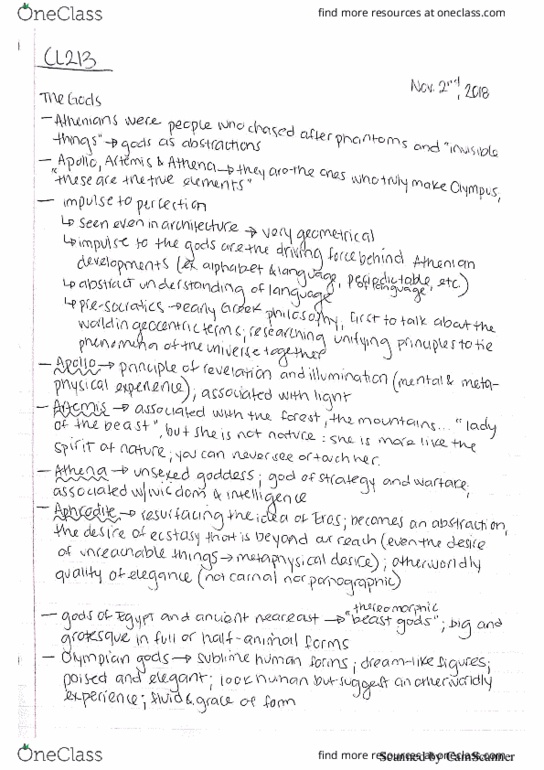 OneClass
find more resources at oneclass.com
CL213
Nov. 2nd, 2018
The Gods
- Athenians were people who chased after phantoms and "invisible
things" → gods as abstractions
- Apollo, Artemis & Athena → they are the ones who truly make Olympus,
"these are the true elements"
- impulse to perfection
↳ seen even in architecture → very geometrical
↳ impulse to the gods are the driving force behind Athenian
developments (ex alphabet & language, periodic table, etc.)
of language
↳ abstract understanding of language
↳ pre-socratics → early Greek philosophy, first to talk about the
world in geocentric terms; researching unifying principles to tie
phenomena of the universe together
- Apollo → principle of revelation and illumination (mental & meta-
physical experience); associated with light
- Artemis → associated with the forest, the mountains... "lady
of the beast", but she is not nature: she is more like the
spirit of nature; you can never see or touch her.
- Athena → unsexed goddess; god of strategy and warfare;
associated w/ wisdom & intelligence
- Aphrodite → resurfacing the idea of Eros; becomes an abstraction,
the desire of ecstasy that is beyond our reach (even the desire
of unreachable things → metaphysical desire); otherworldly
quality of elegance (not carnal nor pornographic)
thereomorphic
- gods of Egypt and ancient near east → "beast gods"; big and
grotesque in full or half-animal forms
- Olympian gods → sublime human forms; dream-like figures;
poised and elegant; look human but suggest an otherworldly
experience; fluid & grace of form
OneClass
find more resources at oneclass.com
Scanned by CamScanner